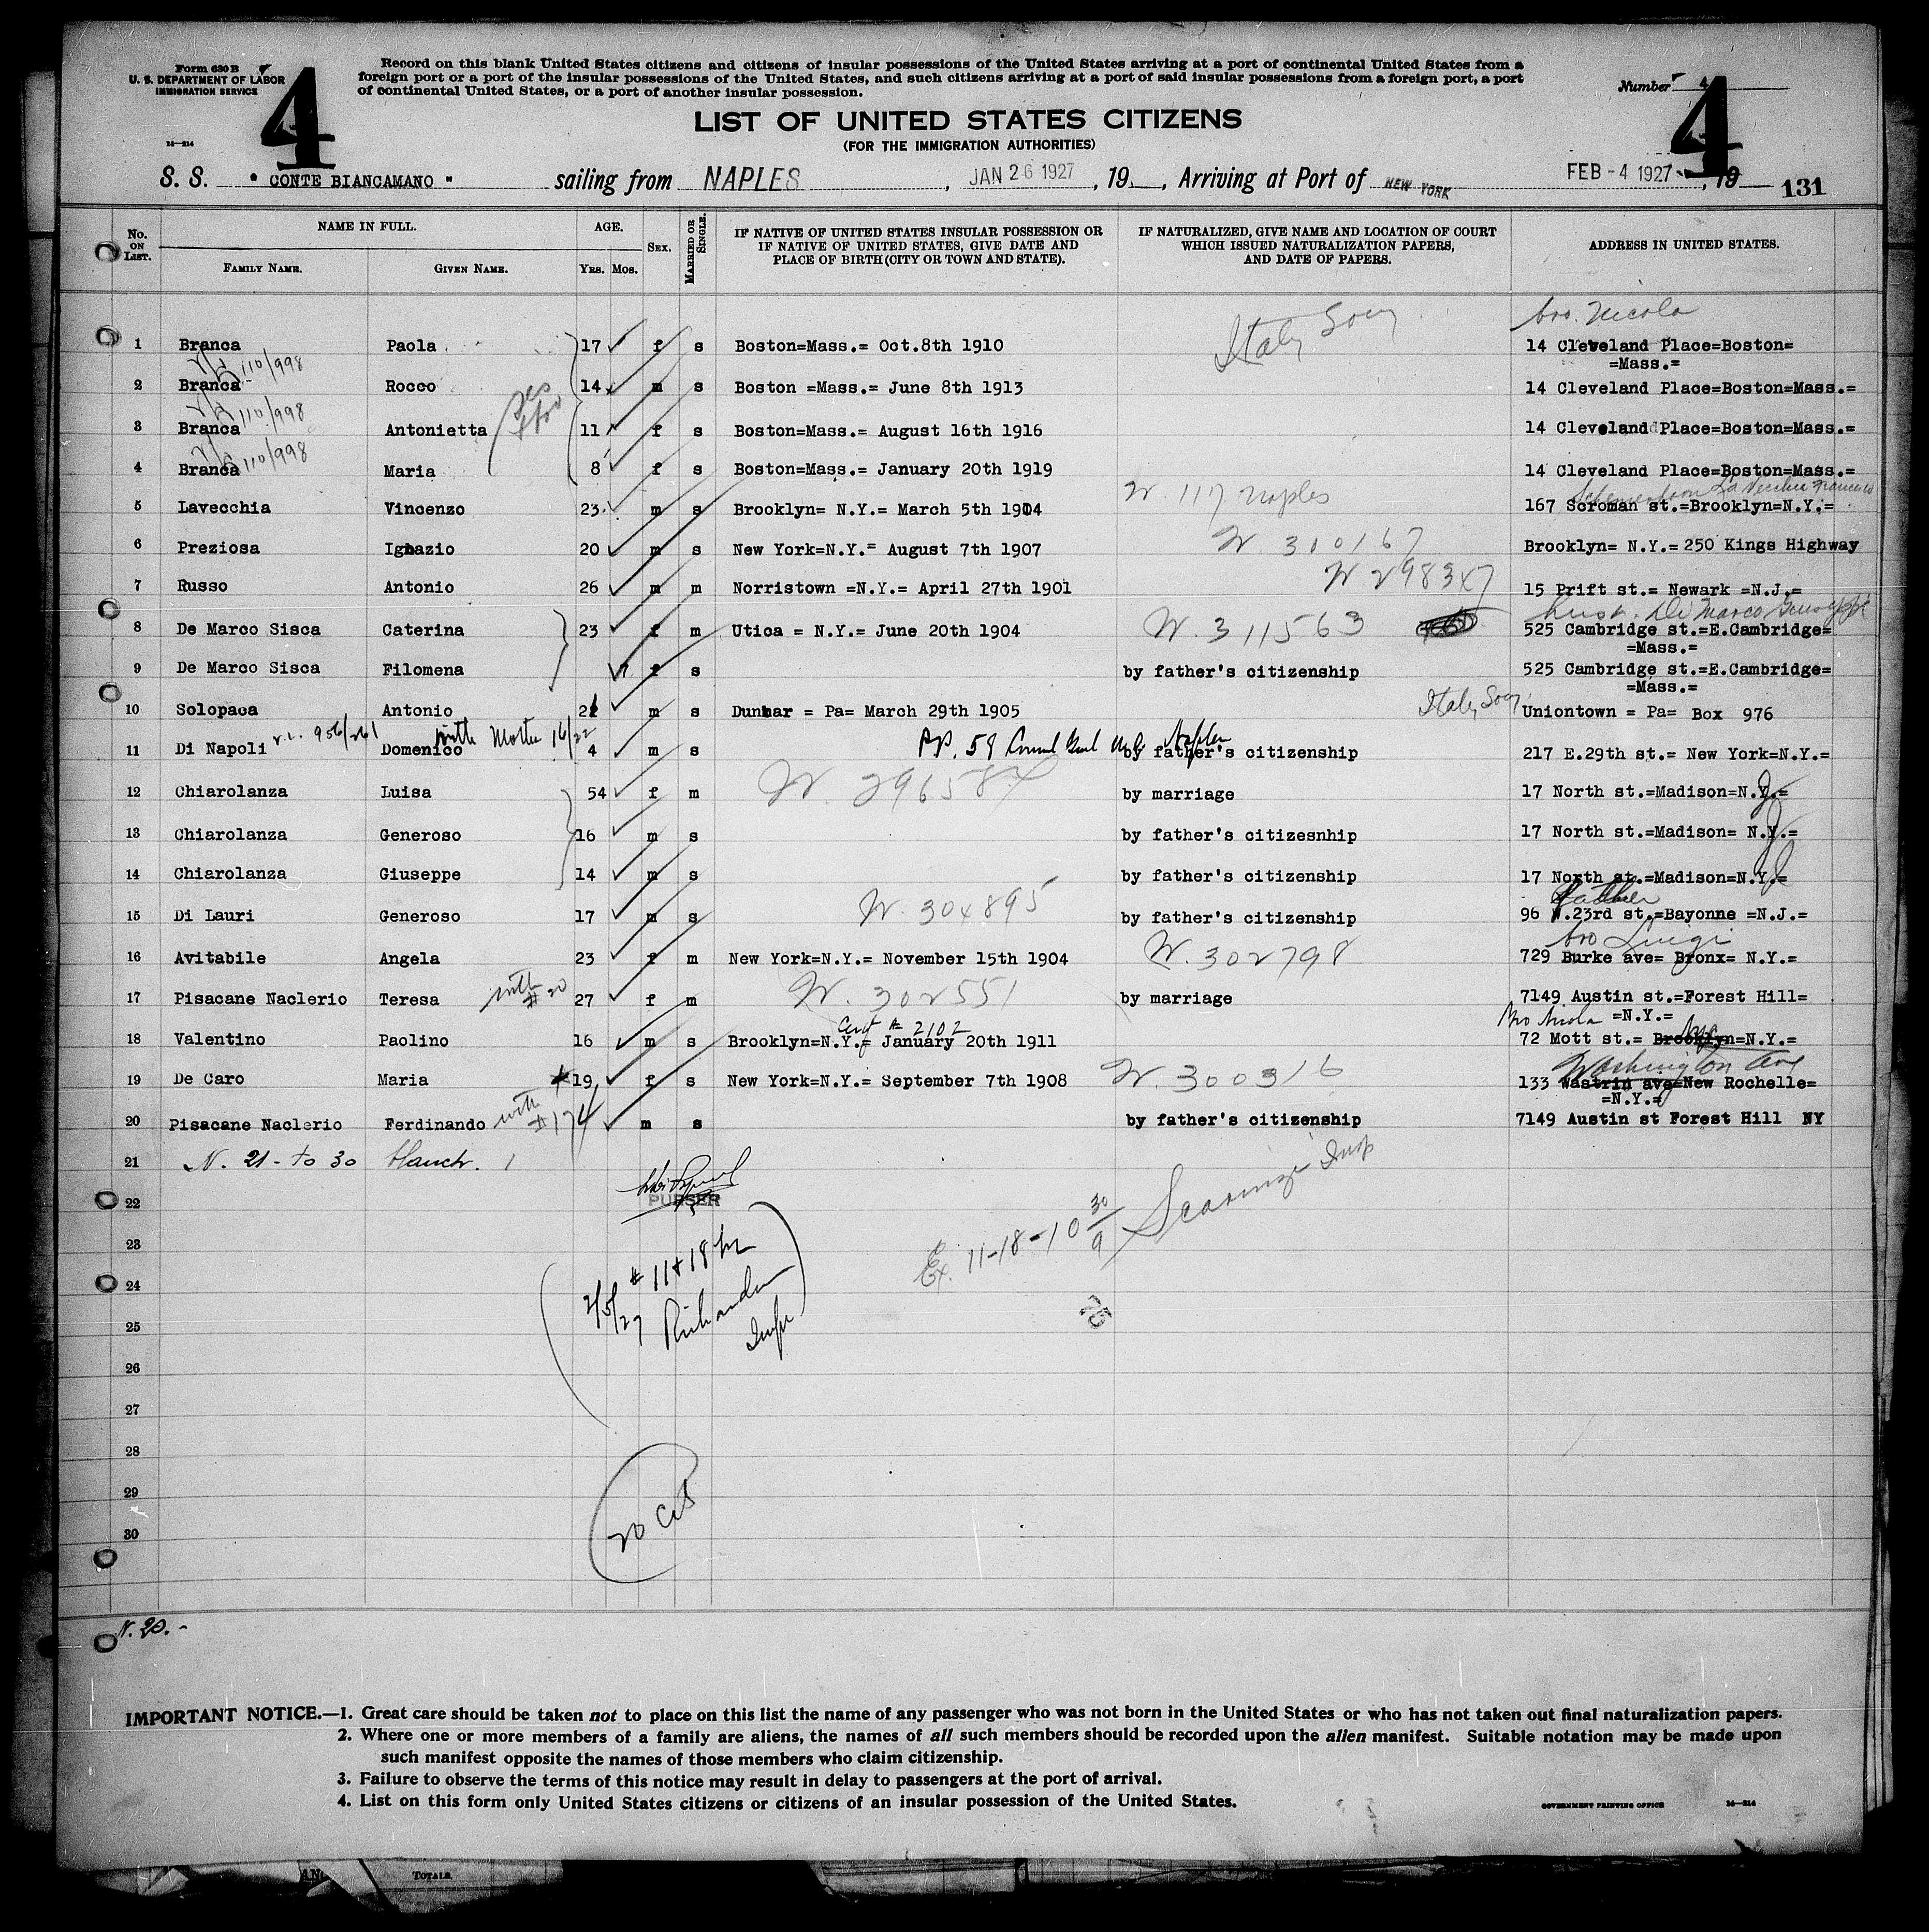 Form 630 B
U. S. DEPARTMENT OF LABOR
IMMIGRATION SERVICE
14—214
4
Record on this blank United States citizens and citizens of insular possessions of the United States arriving at a port of continental United States from a
foreign port or a port of the insular possessions of the United States, and such citizens arriving at a port of said insular possessions from a foreign port, a port
of continental United States, or a port of another insular possession.
Number 4
4
LIST OF UNITED STATES CITIZENS
(FOR THE IMMIGRATION AUTHORITIES)
S. S. " CONTE BIANCAMANO " sailing from NAPLES, JAN 26 1927, 19 , Arriving at Port of NEW YORK FEB - 4 1927, 19 131
No. ON LIST.
NAME IN FULL.
FAMILY NAME. GIVEN NAME.
AGE.
YRS. MOS.
SEX.
MARRIED OR SINGLE.
IF NATIVE OF UNITED STATES INSULAR POSSESSION OR
IF NATIVE OF UNITED STATES, GIVE DATE AND
PLACE OF BIRTH (CITY OR TOWN AND STATE).
IF NATURALIZED, GIVE NAME AND LOCATION OF COURT
WHICH ISSUED NATURALIZATION PAPERS,
AND DATE OF PAPERS.
ADDRESS IN UNITED STATES.
bro. Nicola
1 Branca Paola 17 f s Boston=Mass.= Oct.8th 1910 Italy 14 Cleveland Place=Boston=
=Mass.=
110/998
2 Branca Rocco 14 m s Boston =Mass.= June 8th 1913 14 Cleveland Place=Boston=Mass.=
110/998
3 Branca Antonietta 11 f s Boston=Mass.= August 16th 1916 14 Cleveland Place=Boston=Mass.=
110/998
4 Branca Maria 8 f s Boston=Mass.= January 20th 1919 14 Cleveland Place=Boston=Mass.=
W. 117 Naples
La Vecchia Francesco
5 Lavecchia Vincenzo 23 m s Brooklyn= N.Y.= March 5th 1904 167 Scroman st.=Brooklyn=N.Y.=
6 Preziosa Ignazio 20 m s New York=N.Y.= August 7th 1907 W. 300167 Brooklyn= N.Y.= 250 Kings Highway
7 Russo Antonio 26 m m Norristown =N.Y.= April 27th 1901 W 298347 15 Prift st.= Newark =N.J.=
Husb. De Marco Giuseppe
8 De Marco Sisca Caterina 23 f m Utica = N.Y.= June 20th 1904 W. 311563 525 Cambridge st.=E.Cambridge=
=Mass.=
9 De Marco Sisca Filomena 7 f s by father's citizenship 525 Cambridge st.=E.Cambridge=
=Mass.=
10 Solopaca Antonio 21 m s Dunbar = Pa= March 29th 1905 Italy Uniontown = Pa= Box 976
956/261 with Mother 16/22 PP. 58 Naples
11 Di Napoli Domenico 4 m s by father's citizenship 217 E.29th st.= New York=N.Y.=
12 Chiarolanza Luisa 54 f m W. 296584 by marriage 17 North st.=Madison=N.J.=
13 Chiarolanza Generoso 16 m s by father's citizesnhip 17 North st.=Madison= N.J.=
14 Chiarolanza Giuseppe 14 m s by father's citizenship 17 North st.=Madison=N.J.=
father
15 Di Lauri Generoso 17 m s W. 304895 by father's citizenship 96 W.23rd st.=Bayonne =N.J.=
bro Luigi
16 Avitabile Angela 23 f m New York=N.Y.= November 15th 1904 W. 302798 729 Burke ave= Bronx= N.Y.=
17 Pisacane Naclerio Teresa with #20 27 f m W. 302551 by marriage 7149 Austin st.=Forest Hill=
=N.Y.=
Cert # 2102
18 Valentino Paolino 16 m s Brooklyn=N.Y.= January 20th 1911 72 Mott st.= Brooklyn=N.Y.=
Washington Ave
19 De Caro Maria 19 f s New York=N.Y.= September 7th 1908 W. 300316 133 Wastrin ave=New Rochelle=
=N.Y.=
20 Pisacane Naclerio Ferdinando with #17 4 m s by father's citizenship 7149 Austin st Forest Hill NY
21 N. 21 - to 30 blanch.
22 PURSER
23
24
25
26
27
28
29
30
Ex. 11-18-10 30/9 Insp
2/5/27 # 11 + 18
Richardson
Inspr
75
20 cit
N. 20.-
IMPORTANT NOTICE.—1. Great care should be taken not to place on this list the name of any passenger who was not born in the United States or who has not taken out final naturalization papers.
2. Where one or more members of a family are aliens, the names of all such members should be recorded upon the alien manifest. Suitable notation may be made upon
such manifest opposite the names of those members who claim citizenship.
3. Failure to observe the terms of this notice may result in delay to passengers at the port of arrival.
4. List on this form only United States citizens or citizens of an insular possession of the United States.
GOVERNMENT PRINTING OFFICE 14—214
TOTALS.